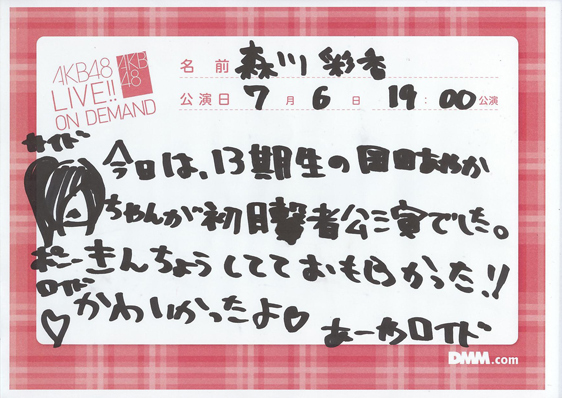 AKB48
LIVE!!
ON DEMAND
AKB
48
名前 森川 彩香
公演日 7月6日 19:00公演
サイド
今日は、13期生の岡田あやか
ちゃんが初日撃者公演でした。
ポニー きんちょうしてておもしろかった!!
ロイド
♡かわいかったよ♡
あーやロイド
DMM.com